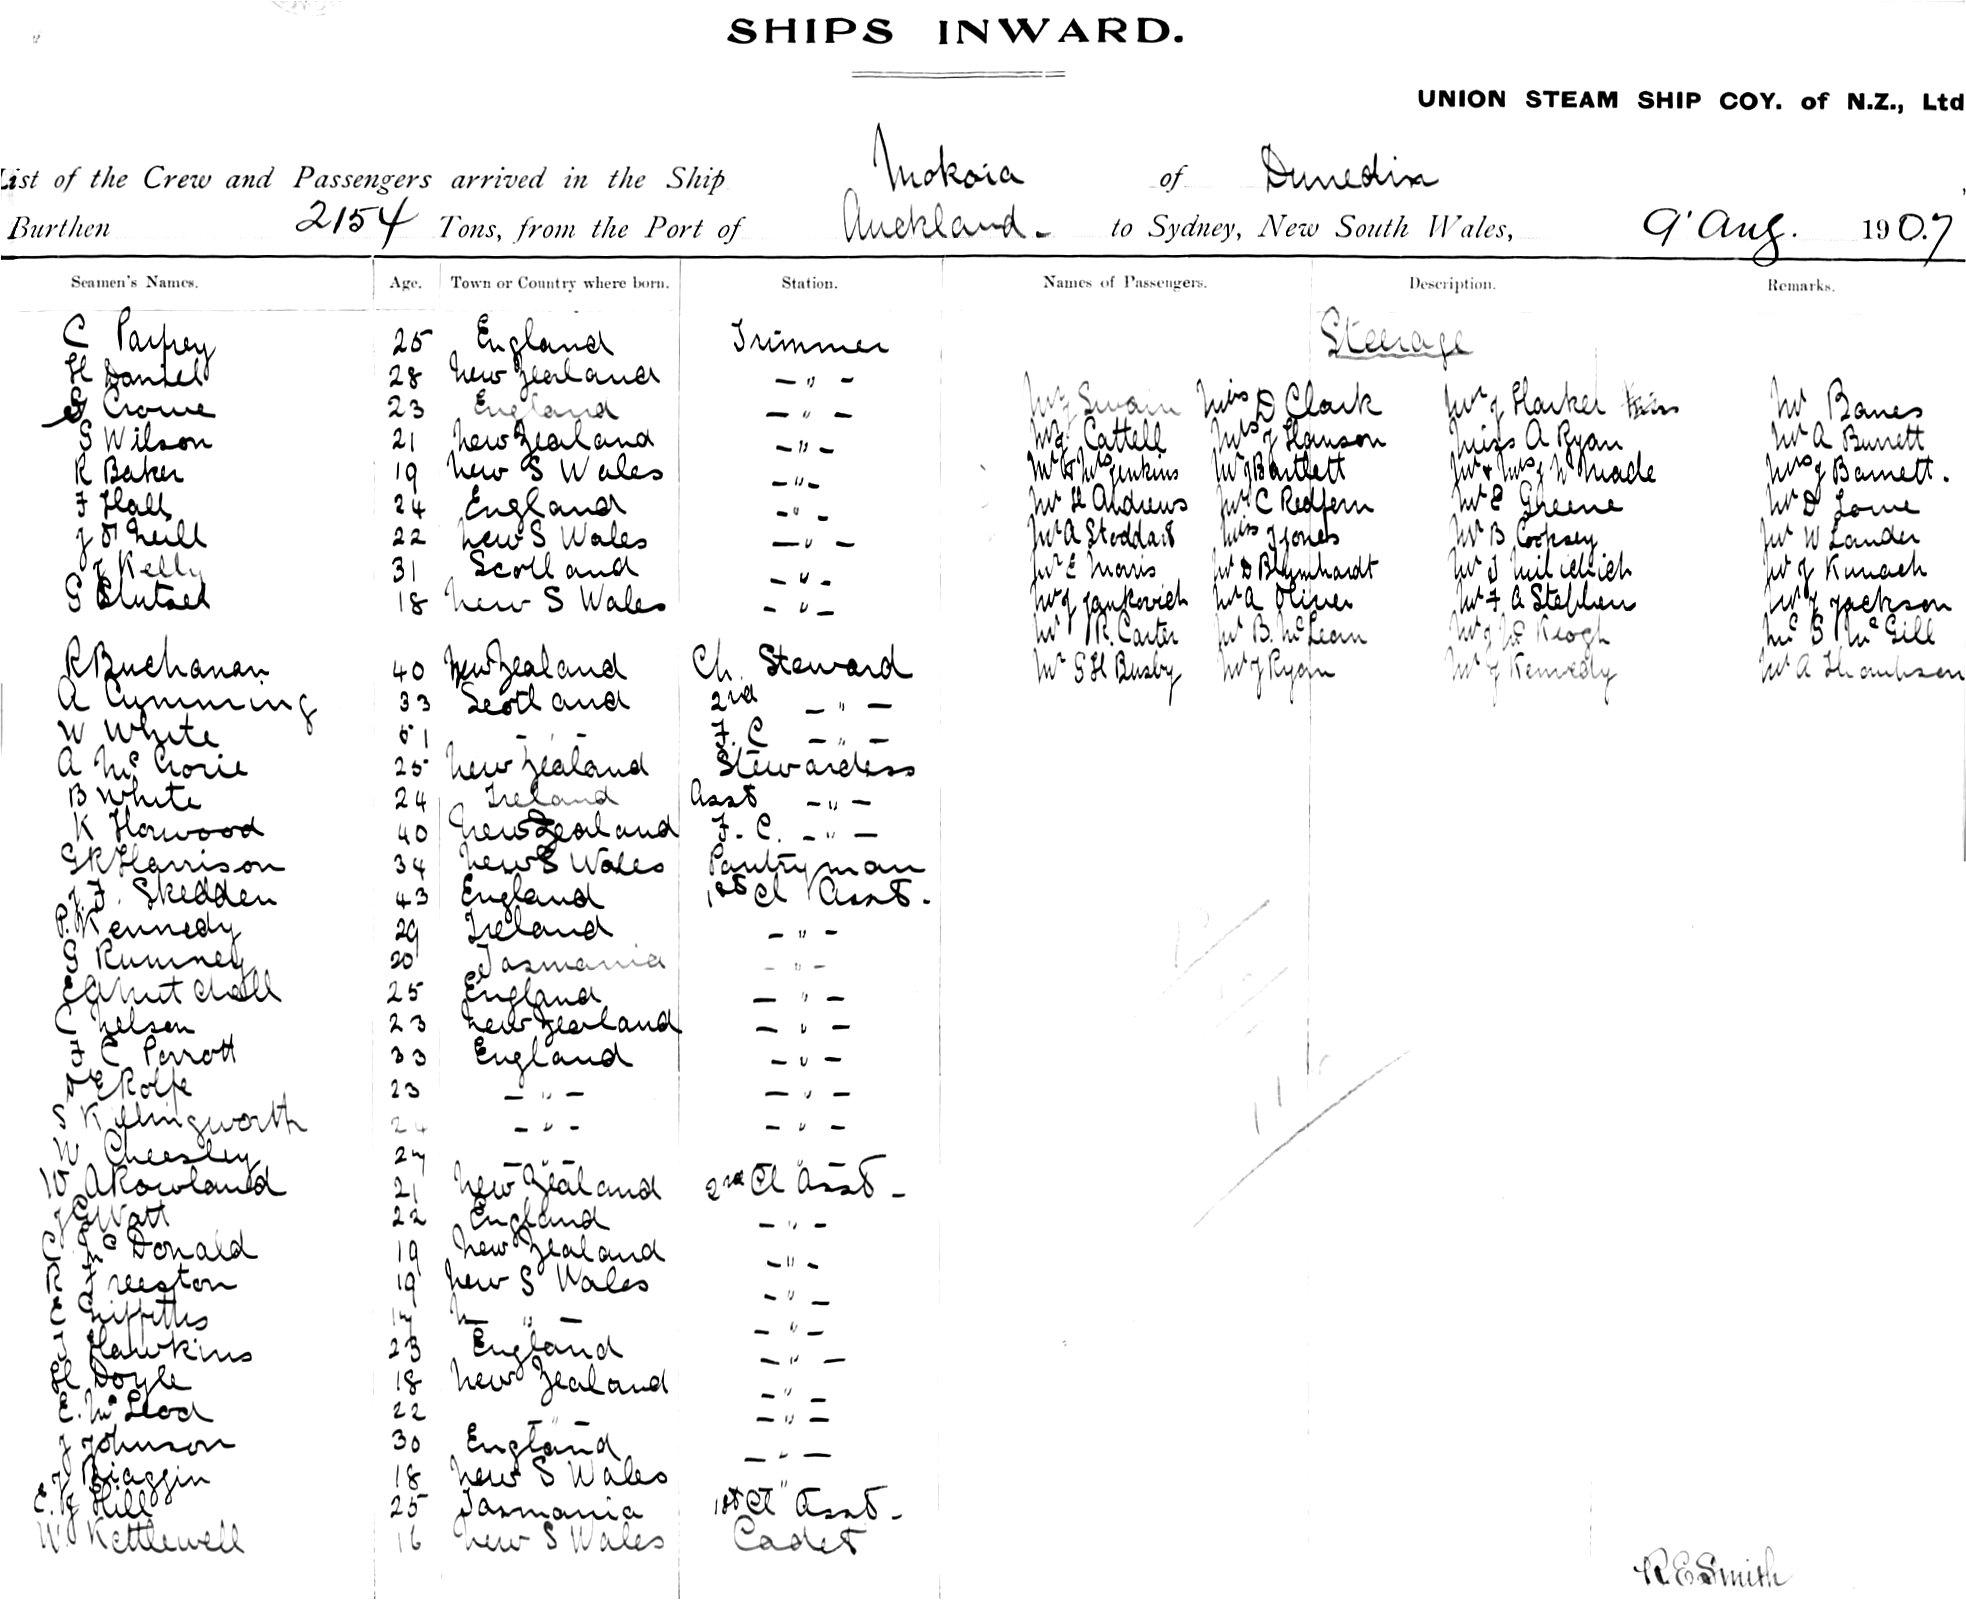 SHIPS INWARD.
UNION STEAM SHIP COY. of N.Z., Ltd
List of the Crew and Passengers arrived in the Ship Mokoia of Dunedin,
Burthen 2154 Tons, from the Port of Auckland - to Sydney, New South Wales, 9' Aug. 1907
Seamen's Names. Age. Town or Country where born. Station. Names of Passengers. Description. Remarks.
Steerage
C Parfrey 25 England Trimmer
H Daniel 28 New Zealand — " —
Crowe 23 England — " —
S Wilson 21 New Zealand — " —
R Baker 19 New S Wales — " —
F Hall 24 England - " -
J O'Neill 22 New S Wales — " —
J Kelly 31 Scotland - " -
G 18 New S Wales - " -
R Buchanan 40 New Zealand Ch. Steward
A Cumming 33 Scotland 2nd — " —
W White 51 - " - F. C — " —
A McCrorie 25 New Zealand Stewardess
B White 24 Ireland Asst — " —
K Horwood 40 New Zealand F. C. — " —
G R Harrison 34 New S Wales Pantryman
J. F. Skedden 43 England 1st Cl Asst.
P. Kennedy 29 Ireland - " -
G Rumney 20 Tasmania - " -
25 England — " —
C Nelson 23 New Zealand — " —
F C Perrott 33 England — " —
E Rolfe 23 — " — — " —
S Killingworth 24 — " — — " —
W Cheesley 27 — " — — " —
W A Rowland 21 New Zealand 2nd Cl Asst -
J G Watt 22 England — " —
C McDonald 19 New Zealand — " —
R Freeston 19 New S Wales - " -
E Griffiths 17 N — " — - " -
J Hawkins 23 England — " —
H Doyle 18 New Zealand — " —
E. McLeod 22 — " — — " —
J Johnson 30 England — " —
J Biaggin 18 New S Wales "
E. J Hill 25 Tasmania 1st Cl Asst -
W. Kettlewell 16 New S Wales Cadet
Mr J Swain Miss D Clark Mr J Harker Mr Banes
Mr Cattell Mrs J Hanson Miss A Ryan Mr A Burrett
Mr & Mrs Jenkins Mr J Bartlett Mr & Mrs J W Made Mrs J Barnett.
Mr H Andrews Mr C Redfern Mr E Greene Mr D Lowe
Mr A Stoddart Miss J Jones Mr B Cooksey Mr W Lander
Mr E Morris Mr D Blumhardt Mr J Milichich Mr J
Mr J Jankovich Mr A Oliver Mr F A Stephen Mr J Jackson
Mr R. Carter Mr B. McLean Mr J McKeogh Mr S McGill
Mr G H Busby Mr J Ryan Mr J Kennedy Mr A Thompson
R E Smith